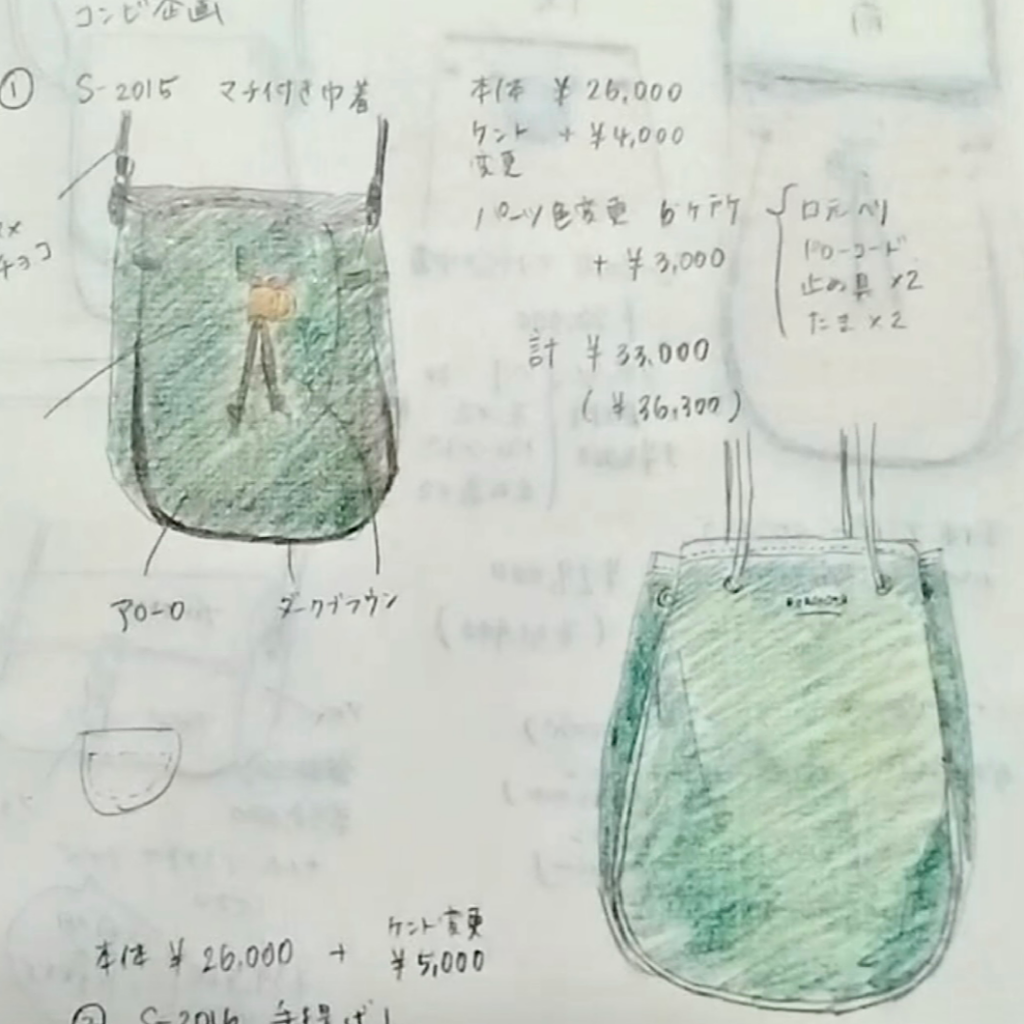 コンビ企画
① S-2015 マチ付き巾着
本体 ¥26,000
ケント + ¥4,000
変更
パーツ色変更 6ケアケ
口元ヘリ
ドローコード
止め具 ×2
たま ×2
+ ¥3,000
チョコ
計 ¥33,000
(¥36,300)
アローロ
ダークブラウン
ケント変更
本体 ¥26,000 + ¥5,000
② S-2016 手提げ